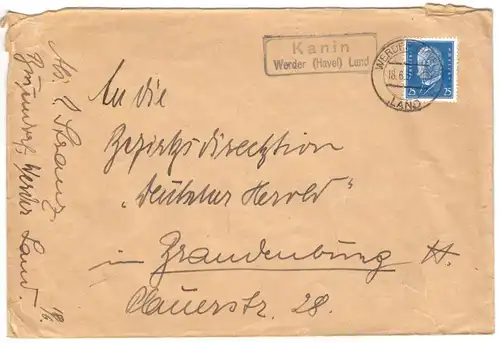 Kanin
Werder (Havel) Land
WERDER
18.6.
LAND
25 25
An die
Bezirksdirecktion
„Deutscher Herold"
in Brandenburg H.
Hauerstr. 28.
Abs.
Werder
Land.